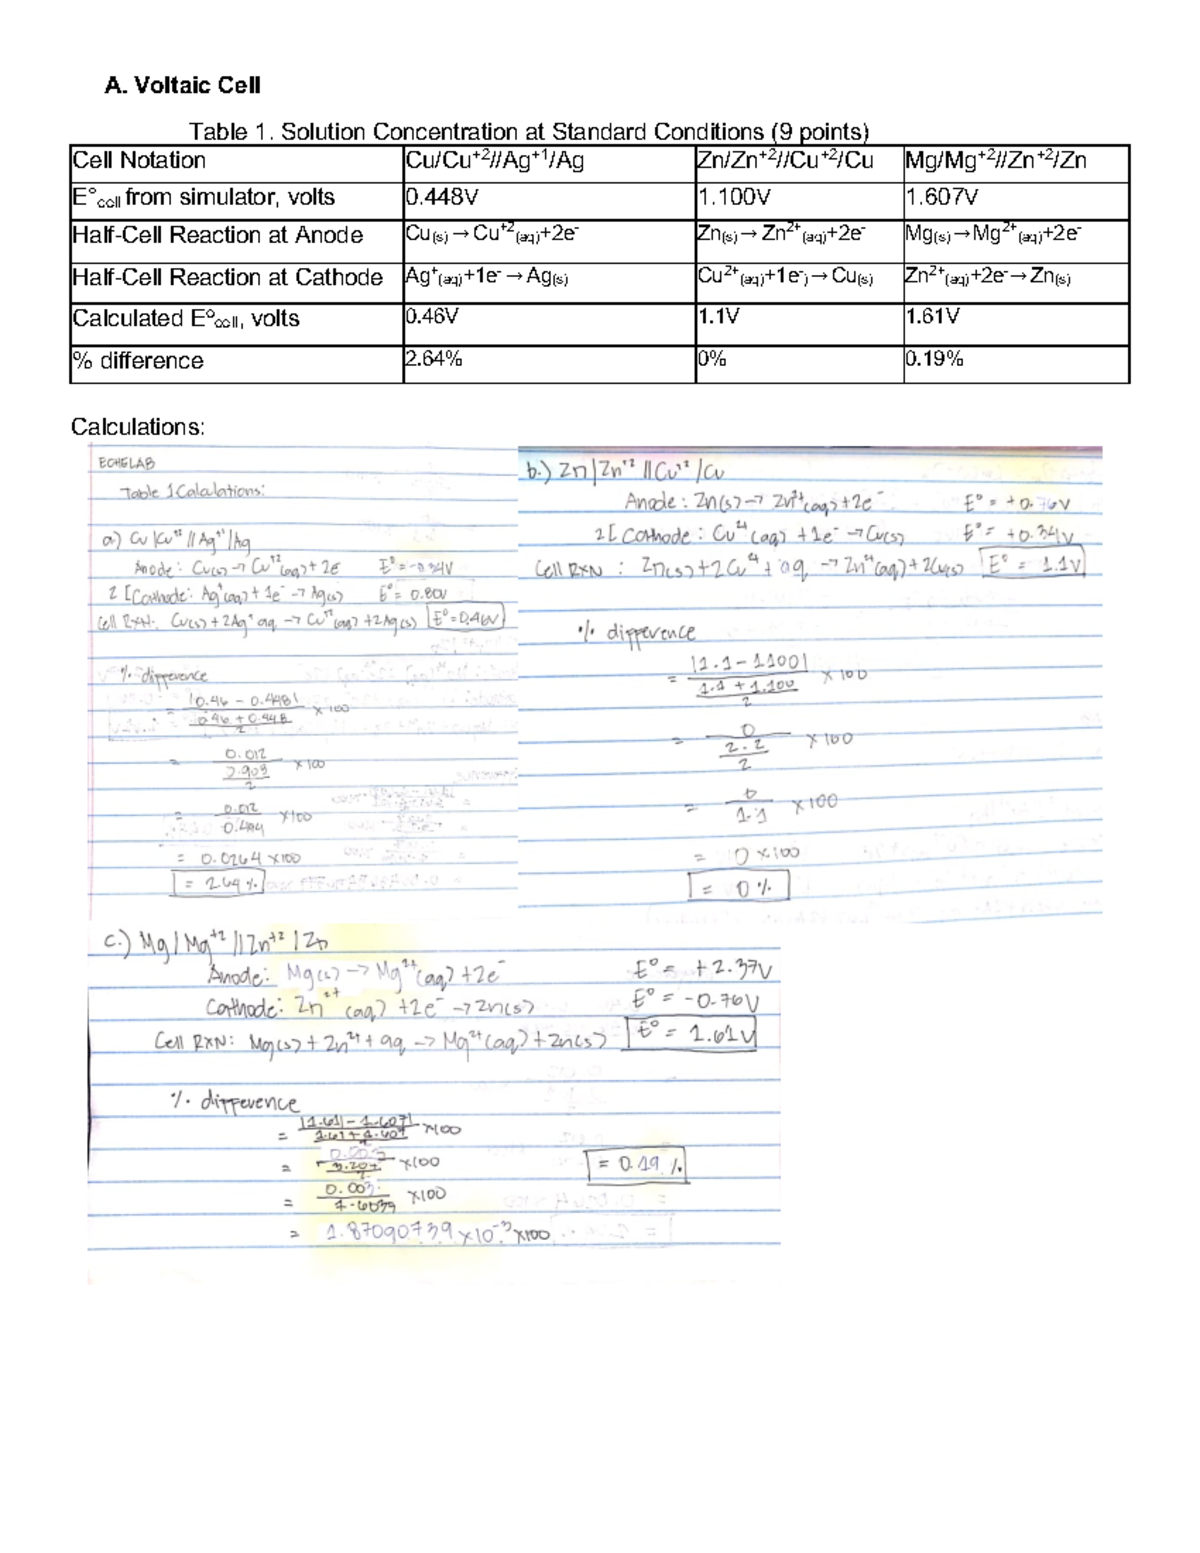 A. Voltaic Cell
Table 1. Solution Concentration at Standard Conditions (9 points)
Cell Notation Cu/Cu+2//Ag+1/Ag Zn/Zn+2//Cu+2/Cu Mg/Mg+2//Zn+2/Zn
E°cell from simulator, volts 0.448V 1.100V 1.607V
Half-Cell Reaction at Anode Cu(s)→Cu+2(aq)+2e- Zn(s)→Zn2+(aq)+2e- Mg(s)→Mg2+(aq)+2e-
Half-Cell Reaction at Cathode Ag+(aq)+1e-→Ag(s) Cu2+(aq)+1e-)→Cu(s) Zn2+(aq)+2e-→Zn(s)
Calculated E°cell, volts 0.46V 1.1V 1.61V
% difference 2.64% 0% 0.19%
Calculations:
ECHELAB
Table 1 Calculations:
a.) Cu/Cu+2//Ag+1/Ag
Anode: Cu(s)→Cu+2(aq)+2e E°=-0.34V
2[Cathode: Ag+(aq)+1e-→Ag(s) E°=0.80V
Cell RXN: Cu(s)+2Ag+ aq→Cu+2(aq)+2Ag(s) E°=0.46V
% difference
= |0.46-0.448|
0.46+0.448 x 100
2
= 0.012
x100
2
= 0.012 x100
= 0.0264 x100
= 2.64%
b.) Zn|Zn+2//Cu+2/Cu
Anode: Zn(s)→Zn2+(aq)+2e- E°=+0.76V
2[Cathode: Cu2+(aq)+1e-→Cu(s) E°=+0.34V
Cell RXN: Zn(s)+2Cu2++aq→Zn2+(aq)+2Cu(s) E°=1.1V
% difference
= |1.1-1.100|
1.1+1.100 x100
2
= 0
2.2 x100
2
= 0
1.1 x100
= 0x100
= 0%
c.) Mg/Mg+2//Zn+2/Zn
Anode: Mg(s)→Mg2+(aq)+2e- E°=+2.37V
Cathode: Zn2+(aq)+2e-→Zn(s) E°=-0.76V
Cell RXN: Mg(s)+Zn2++aq→Mg2+(aq)+Zn(s) E°=1.61V
% difference
= |1.61-1.607|
1.61+1.607 x100
= x100 = 0.19%
= 0.003 x100
= 1.87090739x10-3x100